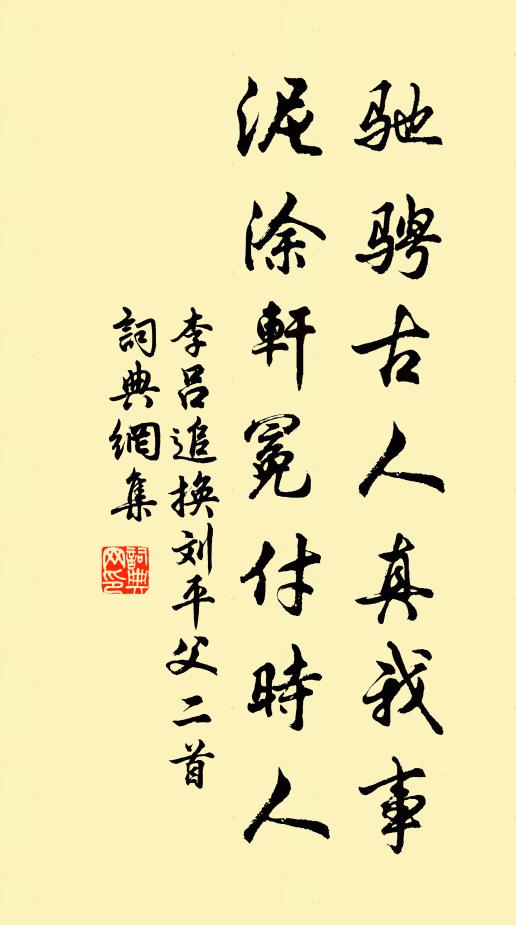 驰骋古人真我事
泥涂軒冕付時人
李吕追換刘平父二首
詞典網集
詞典网印